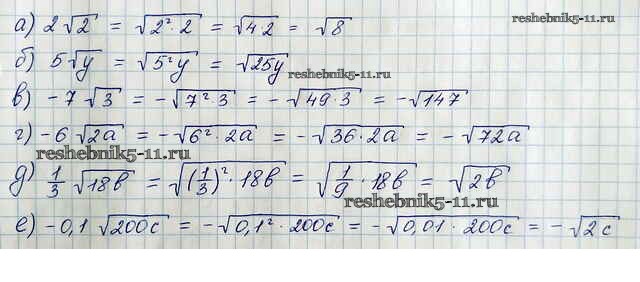 reshebnik5-11.ru
а) 2√2 = √(2²·2) = √(4·2) = √8
б) 5√y = √(5²y) = √(25y)
reshebnik5-11.ru
в) -7√3 = -√(7²·3) = -√(49·3) = -√147
г) -6√(2a) = -√(6²·2a) = -√(36·2a) = -√(72a)
reshebnik5-11.ru
д) 1/3 √(18b) = √((1/3)²·18b) = √(1/9·18b) = √(2b)
reshebnik5-11.ru
е) -0,1√(200c) = -√(0,1²·200c) = -√(0,01·200c) = -√(2c)